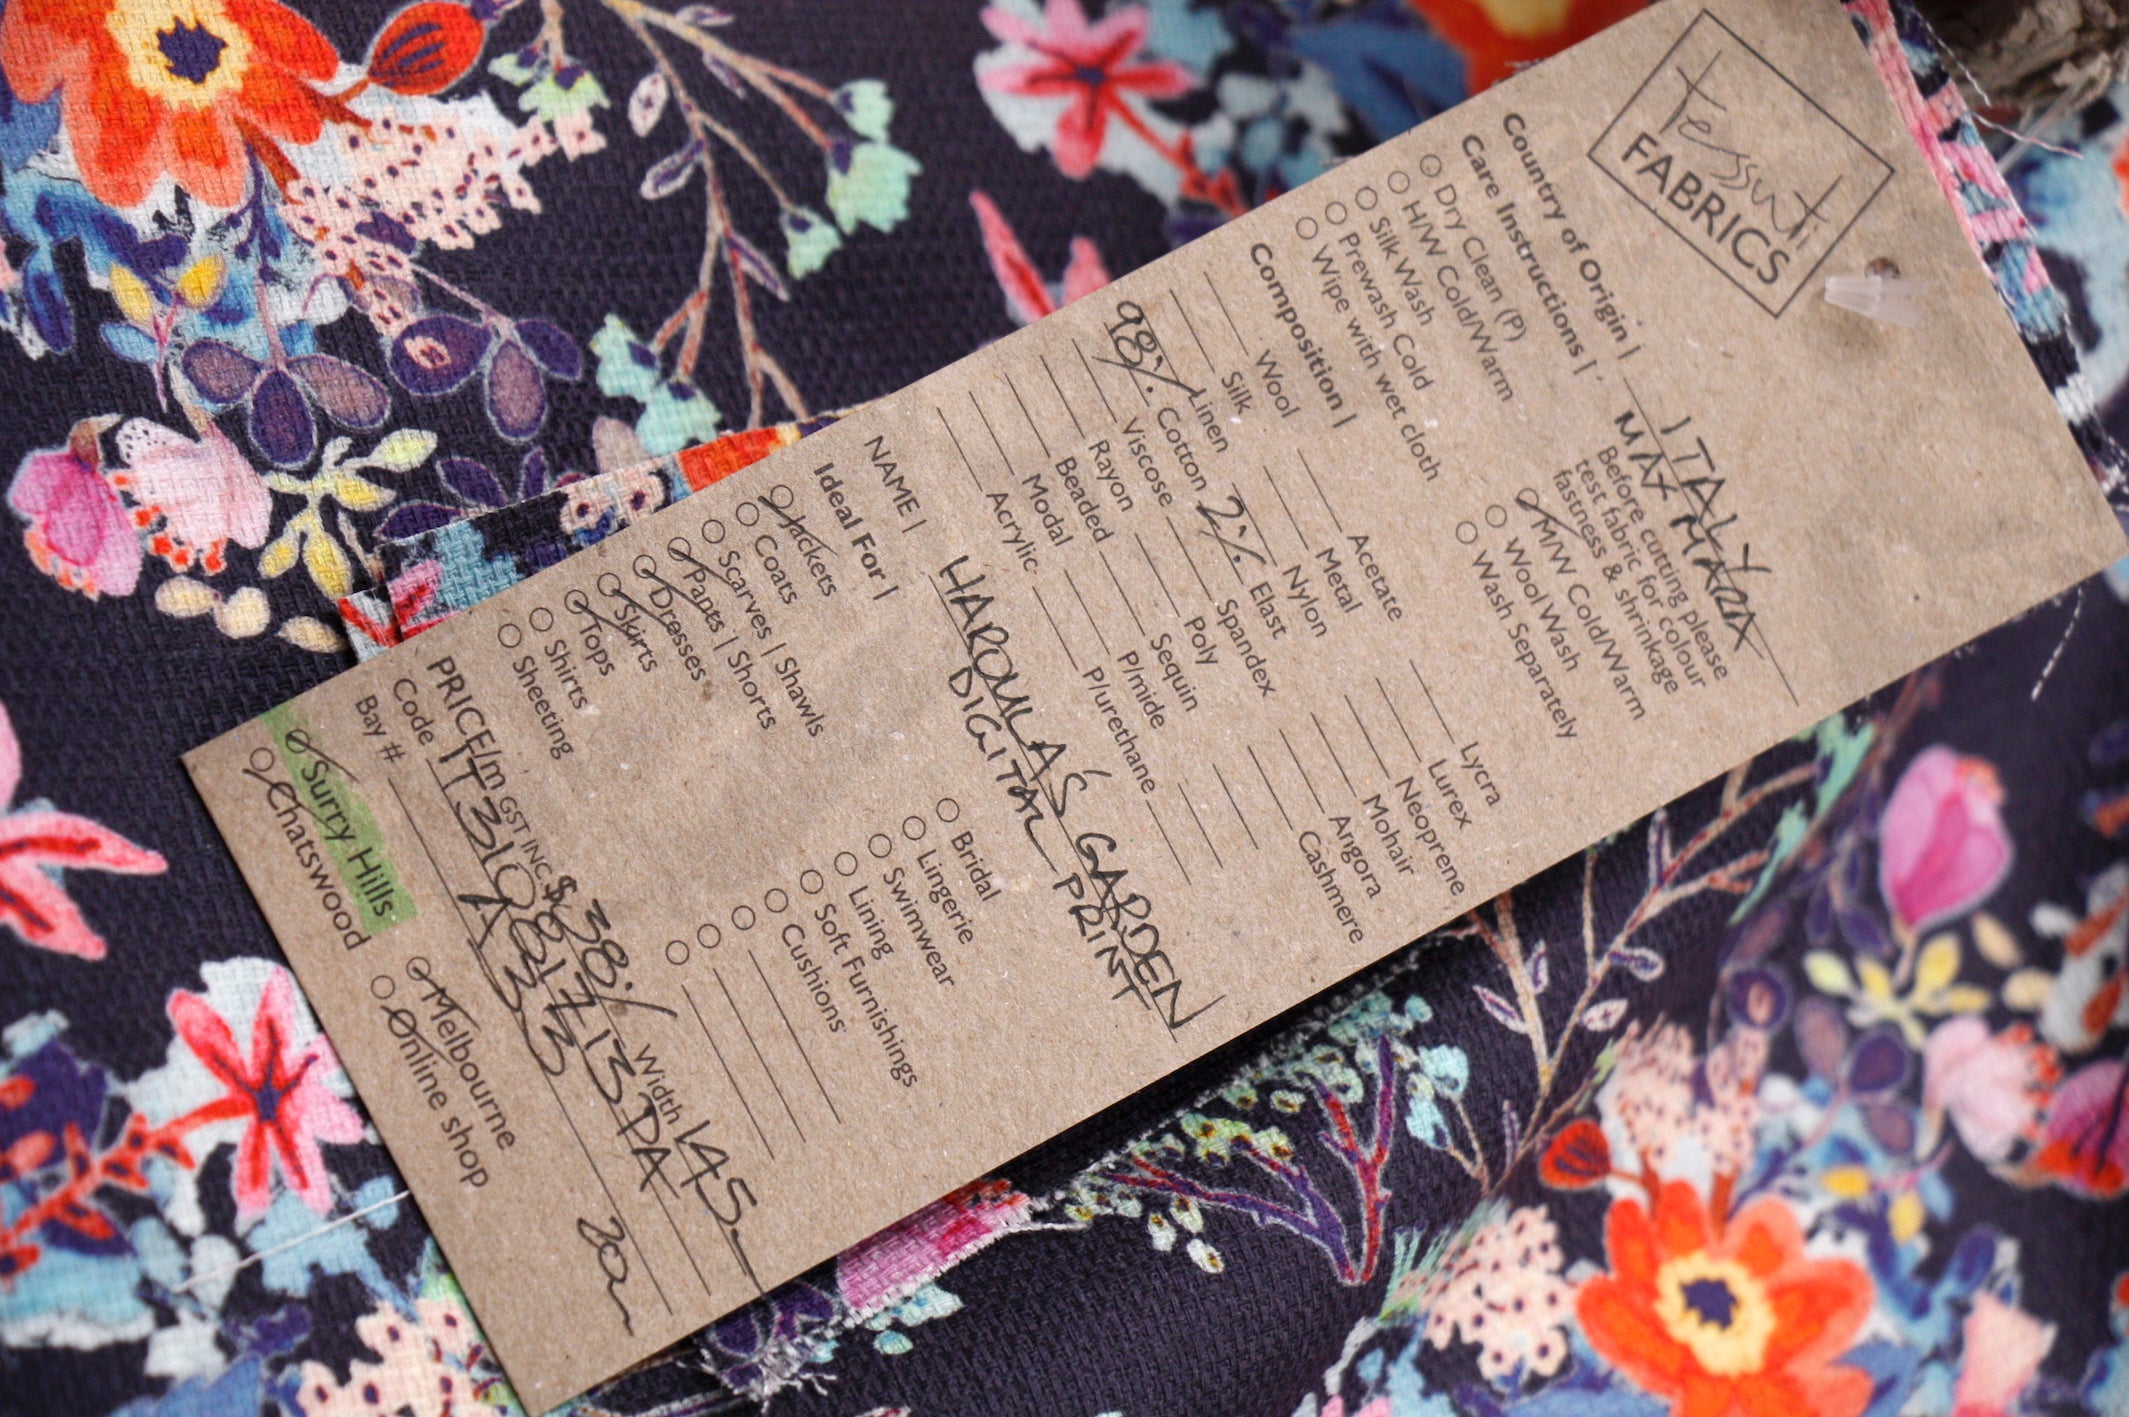 Tessuti
FABRICS
Country of Origin | ITALY
MAX MARA
Care Instructions |
Before cutting please
test fabric for colour
fastness & shrinkage
Dry Clean (P)
H/W Cold/Warm
Silk Wash
Prewash Cold
Wipe with wet cloth
M/W Cold/Warm
Wool Wash
Wash Separately
Composition |
Wool
Silk
Linen
98% Cotton
Viscose
Rayon
Beaded
Modal
Acrylic
Acetate
Metal
Nylon
2% Elast
Spandex
Poly
Sequin
P/mide
P/urethane
Lycra
Lurex
Neoprene
Mohair
Angora
Cashmere
NAME | HAROULA'S GARDEN
DIGITAL PRINT
Ideal For |
Jackets
Coats
Scarves | Shawls
Pants | Shorts
Dresses
Skirts
Tops
Shirts
Sheeting
Bridal
Lingerie
Swimwear
Lining
Soft Furnishings
Cushions
PRICE/m GST INC $38·/ Width 145
Code IT31081713DA
Bay # A33
20m
Surry Hills
Chatswood
Melbourne
Online shop